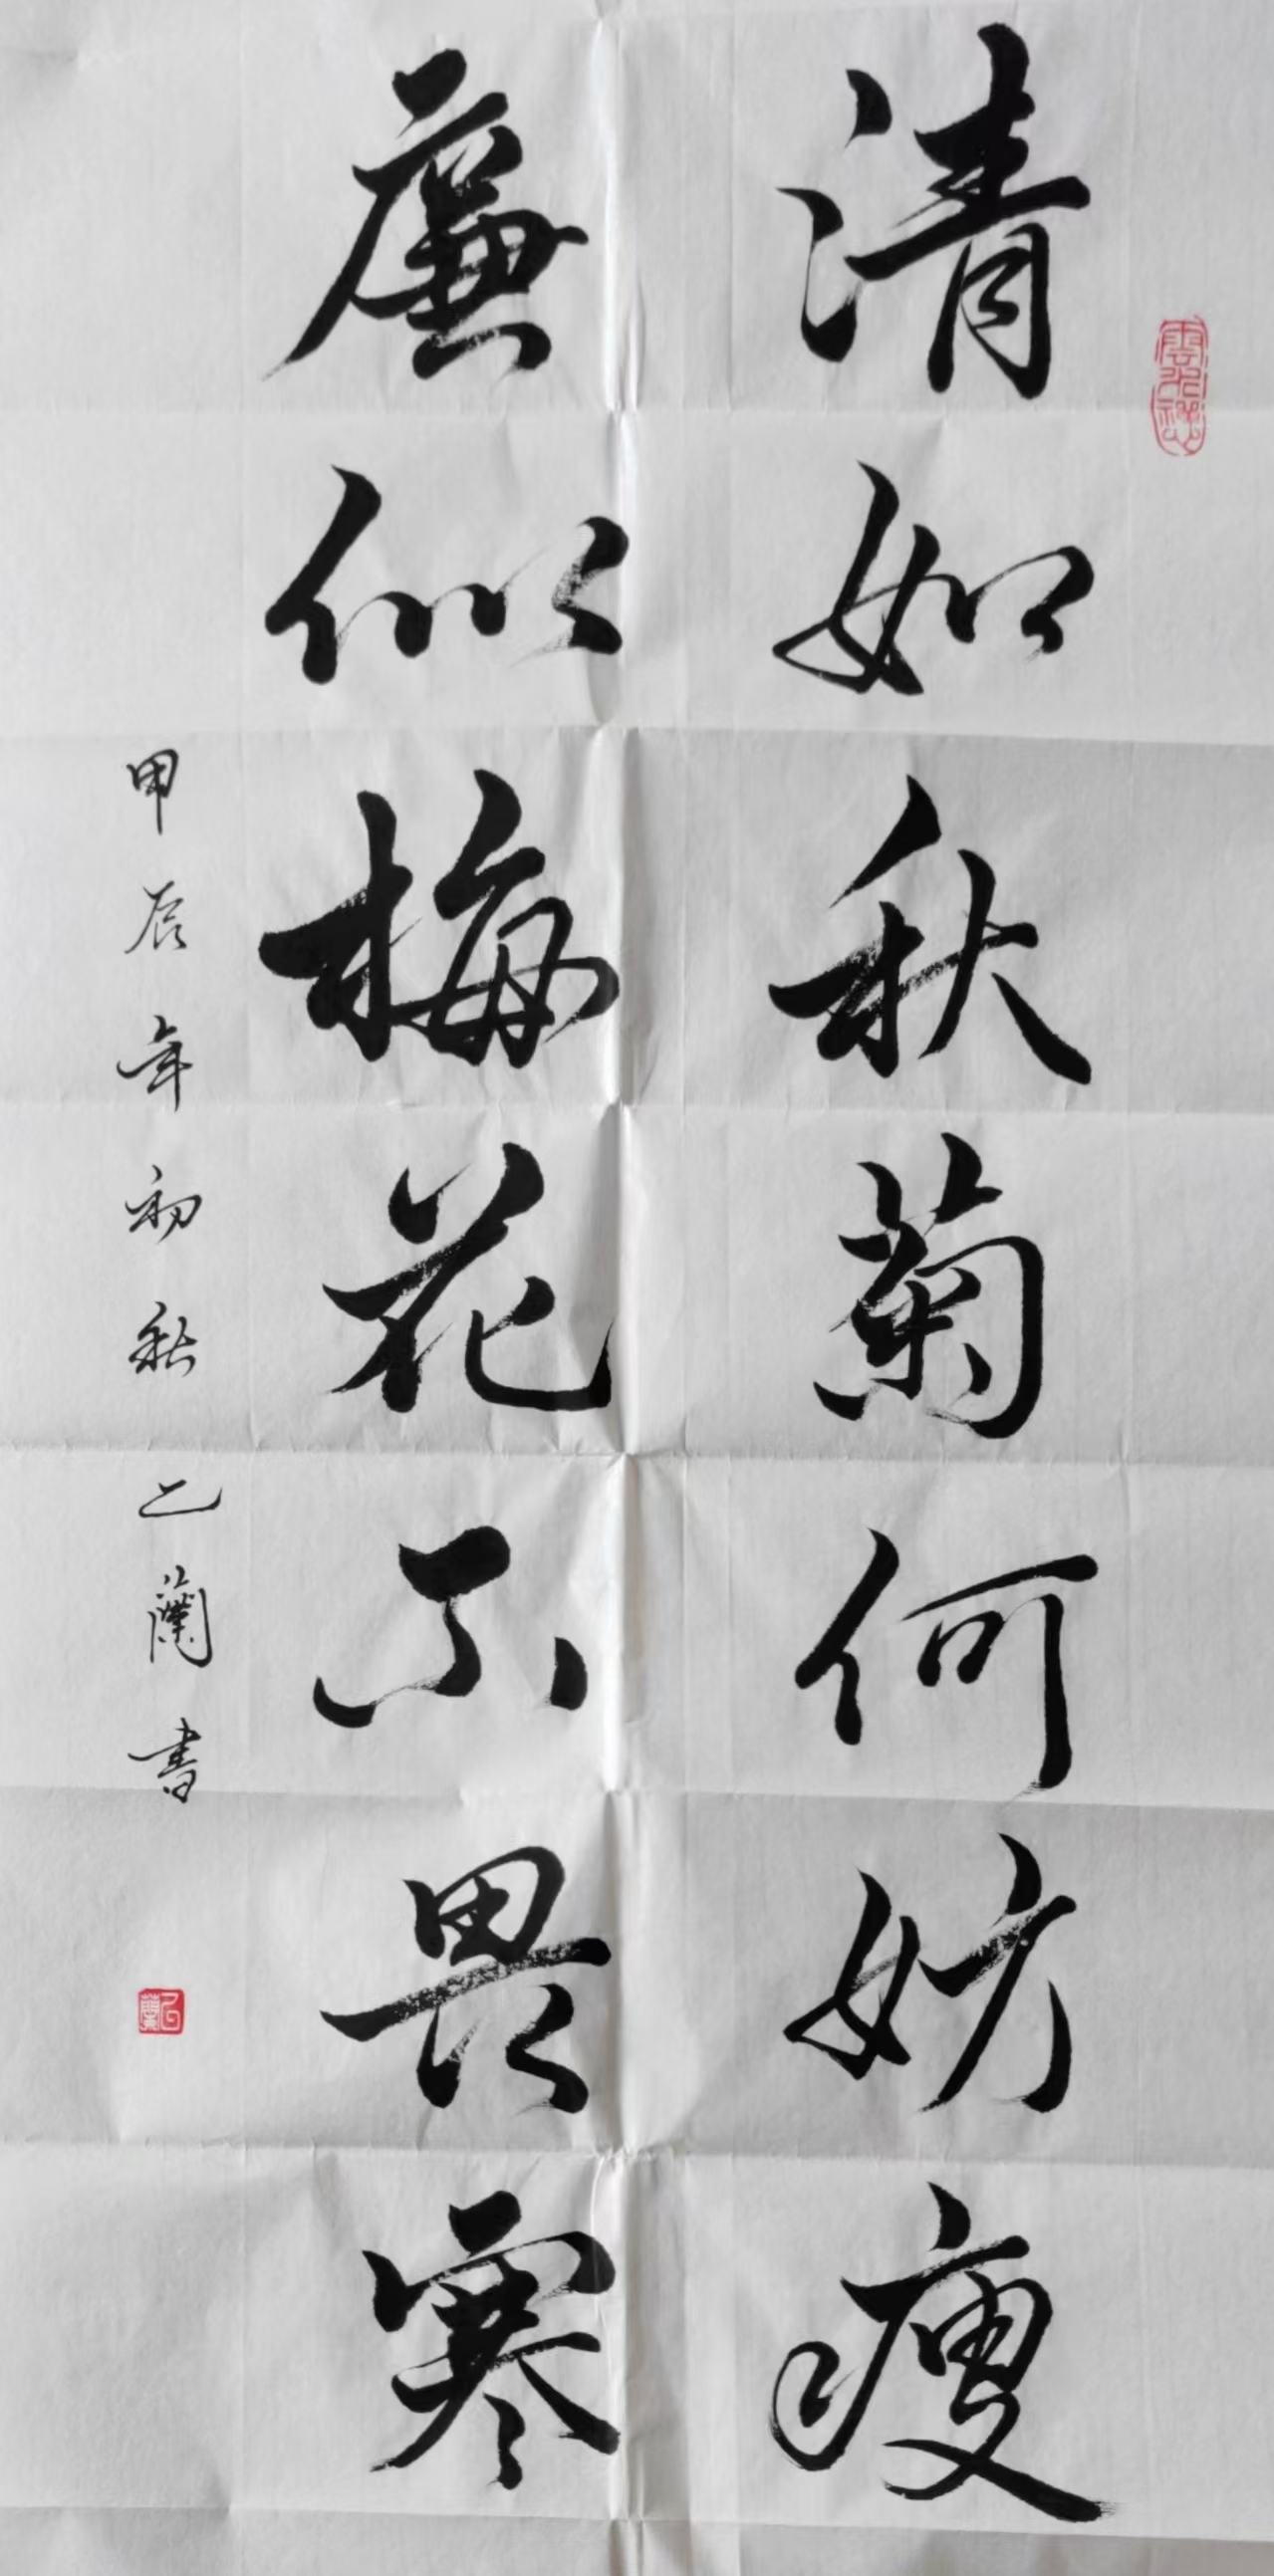 清如秋菊何妨瘦
廉似梅花不畏寒
甲辰年初秋 乙蘭書